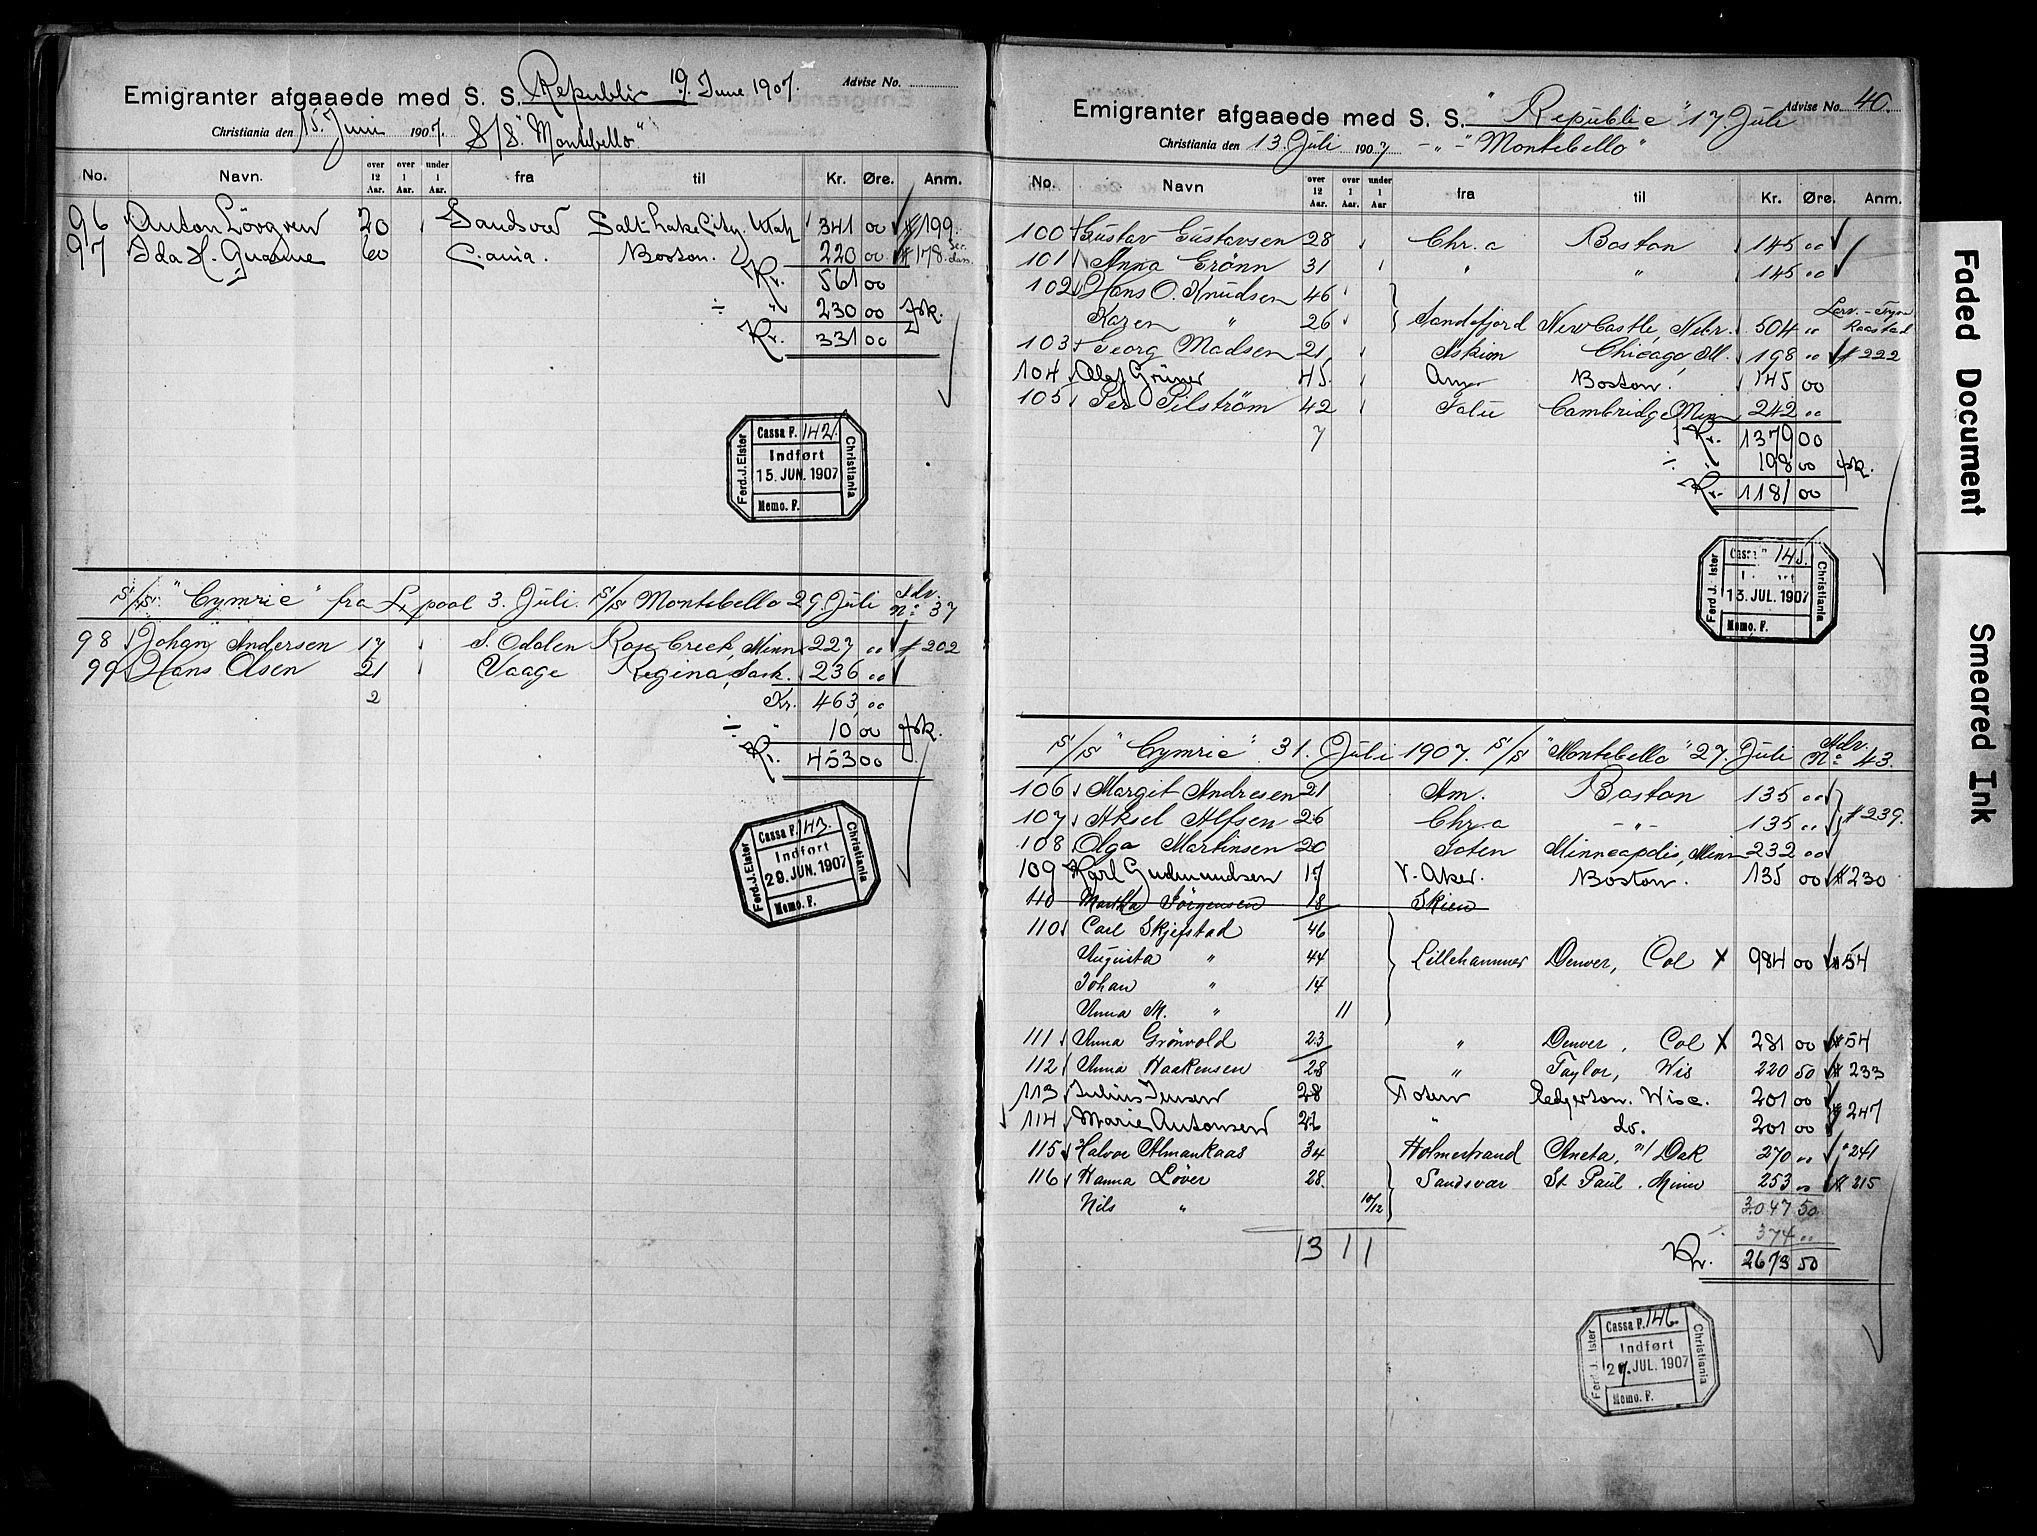 Emigranter afgaaede med S. S. Republic 19. June 1907. Advise No.
Christiania den 15. Juni 1907. S/S. "Montebello"
No. Navn. over 12 Aar. over 1 Aar. under 1 Aar. fra til Kr. Øre. Anm.
96 Anton Lövgren 20 Sandsvær Salt Lake City. Utah 341 00 # 199.
97 Ida H. 60 C.ania. Boston. 220 00 # 178.
Kr. 561 00
÷ " 230 00 fsk.
Kr. 331 00
Cassa F. 142.
Indført
15. JUN. 1907
Memo. F.
Ferd. J. Elster
Christiania
S/S. "Cymric" fra L.pool 3. Juli. S/S Montebello 29. Juli Adv. No: 37
98 Johan Andersen 17 S. Odalen Rose Creek, Minn. 227 " # 202
99 Hans Olsen 21 Vaage Regina, Sask. 236 "
2 Kr. 463 "
÷ " 10 00 fsk.
Kr. 453 00
Cassa F. 143.
Indført
29. JUN. 1907
Memo. F.
Ferd. J. Elster
Christiania
Emigranter afgaaede med S. S. "Republic" 17. Juli Advise No. 40.
Christiania den 13. Juli 1907 - " - "Montebello"
No. Navn over 12 Aar. over 1 Aar. under 1 Aar fra til Kr. Øre. Anm.
100 Gustav Gustavsen 28 Chr.a Boston 145 00
101 Anna Grönn 31 " " 145 00
102 Hans O. Knudsen 46
Karen " 26 Sandefjord New Castle, Nebr. 504 " Raastad
103 Georg Madsen 21 Askim Chicago, Ill. 198 " # 222
104 Olaf Grüner 45. Am. Boston. 145 00
105 Per Pilström 42 Cambridge Minn 242 "
7 Kr. 1379 00
÷ " 198 00 fsk.
Kr. 1181 00
Cassa 145.
13. JUL. 1907
Memo. F.
Ferd J. Elster
Christiania
S/S "Cymric" 31. Juli 1907. S/S "Montebello" 27. Juli Adv. No: 43.
106 Margit Andresen 21 Am. Boston 135 "
107 Aksel Alfsen 26 Chr.a - " - 135 " # 239.
108 Olga Martinsen 20 Toten Minneapolis, Minn 232 00
109 Karl Gudmundsen 17 V. Aker. Boston. 135 00 # 230
110 Martha Jörgensen 18 Skien
110 Carl Skjefstad 46
Augusta " 44 Lillehammer Denver, Col X 984 00 # 54
Johan " 14
Anna M. " 11
111 Anna Grönvold 23 " Denver, Col X 281 00 # 54
112 Anna Haakensen 28 " Taylor, Wis 220 50 # 233
113 Julius Jensen 28 Toten Edgerton. Wisc. 201 00
114 Marie Antonsen " do. 201 00 # 247
115 Halvor Almankaas 34 Holmestrand Aneta, N/ Dak 270 " # 241
116 Hanna Löver 28. Sandsvær St Paul. Minn 253 00 # 215
Nils " 10/12 3047 50
÷ 374 "
13 1 1 Kr. 2673 50
Cassa F. 146.
Indført
27. JUL. 1907
Memo. F.
Ferd. J. Elster
Christiania
Faded Document
Smeared Ink